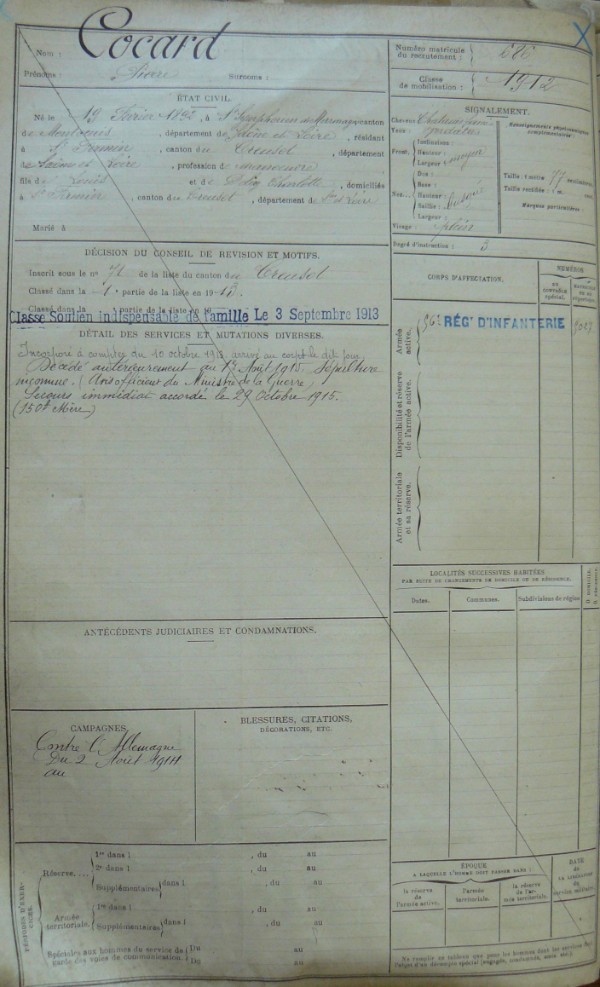 Nom : Cocard
Prénoms : Pierre Surnoms :
ÉTAT CIVIL.
Né le 19 Février 1892, à St Symphorien de Marmagne, canton
de Montcenis, département de Saône et Loire, résidant
à St Firmin, canton du Creusot, département
de Saône et Loire, profession de manoeuvre
fils de Louis et de Charlotte, domiciliés
à St Firmin, canton du Creusot, département de Sne et Loire
Marié à
DÉCISION DU CONSEIL DE REVISION ET MOTIFS.
Inscrit sous le n° 71 de la liste du canton du Creusot
Classé dans la 1e partie de la liste en 1913.
Classé dans la partie de la liste en 19
Classe Soutien indispensable de famille Le 3 Septembre 1913
DÉTAIL DES SERVICES ET MUTATIONS DIVERSES.
Incorporé à compter du 10 octobre 1913, arrivé au corps le dit jour.
Décédé antérieurement au 17 Août 1915. Sépulture
inconnue. (Avis officiel du Ministre de la Guerre)
Secours immédiat accordé le 29 Octobre 1915.
(150f Mère)
ANTÉCÉDENTS JUDICIAIRES ET CONDAMNATIONS.
CAMPAGNES.
Contre l'Allemagne
Du 2 Août 1914
au
BLESSURES, CITATIONS,
DÉCORATIONS, ETC.
PÉRIODES D'EXERCICES.
Réserve....
1re dans l , du au
2e dans l , du au
Supplémentaires dans l , du au
Armée territoriale.
1re dans l , du au
Supplémentaires dans l , du au
Spéciale aux hommes du service de garde des voies de communication.
Du au
Du au
Numéro matricule
du recrutement :
Classe
de mobilisation : 1912
X
SIGNALEMENT.
Cheveux
Yeux
Front
Inclinaison :
Hauteur :
Largeur : moyenne
Nez
Dos :
Base :
Hauteur :
Saillie :
Largeur :
Visage : plein
Renseignements physionomiques
complémentaires :
Taille : 1 mètre 77 centimètres.
Taille rectifiée : 1 m. cent.
Marques particulières :
Degré d'instruction : 3
CORPS D'AFFECTATION.
NUMÉROS
au contrôle spécial.
Armée active.
56e RÉGT D'INFANTERIE
Disponibilité et réserve de l'armée active.
Armée territoriale et sa réserve.
LOCALITÉS SUCCESSIVES HABITÉES
PAR SUITE DE CHANGEMENTS DE DOMICILE OU DE RÉSIDENCE.
Dates. Communes. Subdivisions de région
ÉPOQUE
À LAQUELLE L'HOMME DOIT PASSER DANS :
la réserve de l'armée active.
l'armée territoriale.
la réserve de l'armée territoriale.
DATE
de la libération du service militaire.